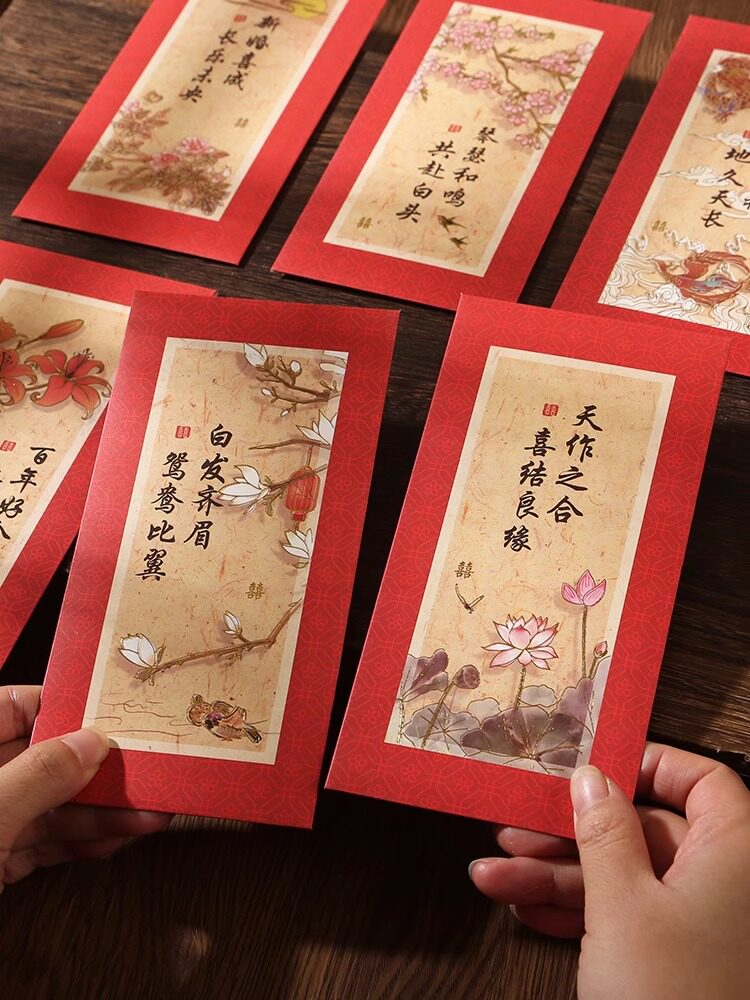 新婚喜咸
长乐未央
囍
琴瑟和鸣
共赴白头
囍
地久天长
囍
百年好合
囍
白发齐眉
鸳鸯比翼
囍
囍
天作之合
喜结良缘
囍
囍